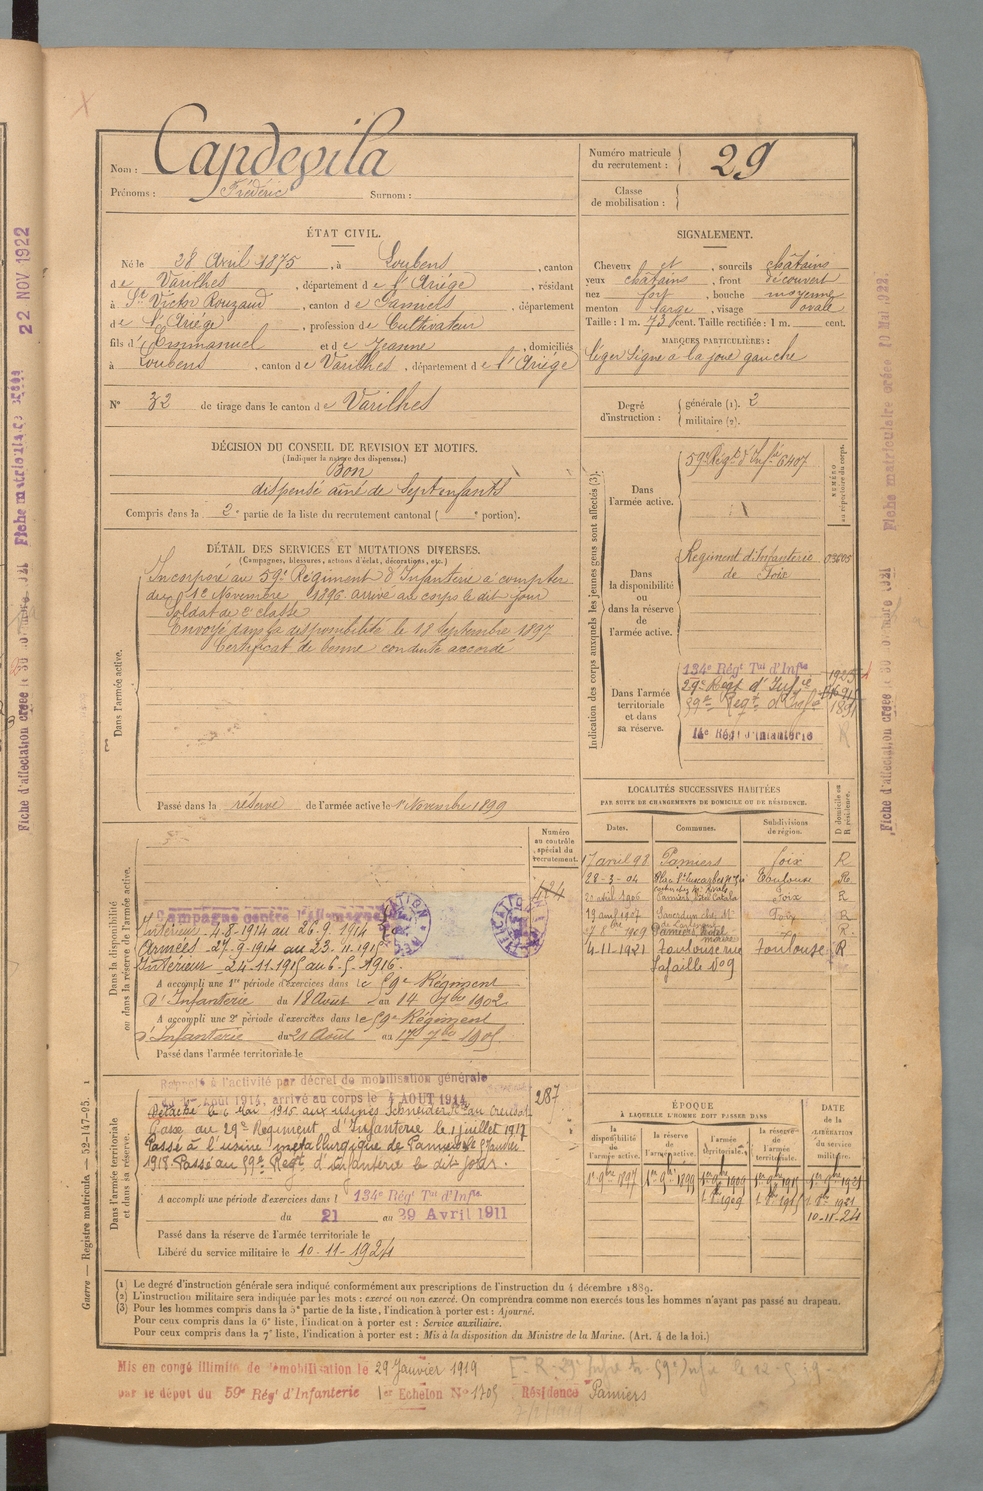 Nom : Capdevila
Prénoms : Frédéric Surnom :
Numéro matricule du recrutement : 29
Classe de mobilisation :
ÉTAT CIVIL.
Né le 28 Avril 1875, à Loubens, canton
de Varilhes, département de l'Ariège, résidant
à St Victor Rouzaud, canton de Pamiers, département
de l'Ariège, profession de Cultivateur
fils d'Emmanuel et de Jeanne, domiciliés
à Loubens, canton de Varilhes, département de l'Ariège
N° 32 de tirage dans le canton de Varilhes
SIGNALEMENT.
Cheveux et, sourcils châtains
yeux châtains, front découvert
nez fort, bouche moyenne
menton large, visage ovale
Taille : 1 m. 73 cent. Taille rectifiée : 1 m. cent.
MARQUES PARTICULIÈRES :
léger signe à la joue gauche
Degré d'instruction : générale (1). 2
militaire (2).
DÉCISION DU CONSEIL DE REVISION ET MOTIFS.
(Indiquer la nature des dispenses.)
Bon
dispensé aîné de sept enfants
Compris dans la 2e partie de la liste du recrutement cantonal ( e portion).
DÉTAIL DES SERVICES ET MUTATIONS DIVERSES.
(Campagnes, blessures, actions d'éclat, décorations, etc.)
Dans l'armée active.
Incorporé au 59e Régiment d'Infanterie à compter
du 1e Novembre 1896 arrivé au corps le dit jour
Soldat de 2e classe
Envoyé dans la disponibilité le 18 Septembre 1897
Certificat de bonne conduite accordé
Passé dans la réserve de l'armée active le 1r Novembre 1899
Indication des corps auxquels les jeunes gens sont affectés (3).
NUMÉRO au répertoire du corps.
Dans l'armée active.
59e Régt d'Infie 6407
Dans la disponibilité ou dans la réserve de l'armée active.
Régiment d'Infanterie
de Foix 03605
Dans l'armée territoriale et dans sa réserve.
134e Régt Tal d'Infie
29e Régt d'Infie
59e Regt d'Infie
14e Régt d'Infanterie
LOCALITÉS SUCCESSIVES HABITÉES
PAR SUITE DE CHANGEMENTS DE DOMICILE OU DE RÉSIDENCE.
Dates. Communes. Subdivisions de région. D domicile ou R résidence.
17 avril 98 Pamiers Foix R
28-3-04 Toulouse R
Foix R
19 avril 1907 Foix R
1909
4-11-1921 Toulouse rue Toulouse R
Lafaille No 9
Dans la disponibilité ou dans la réserve de l'armée active.
Numéro au contrôle spécial du recrutement.
424
Campagne contre l'Allemagne
Intérieur 4-8-1914 au 26-9-1914
Armées - 27-9-1914 au 23-11-1915
Intérieur - 24-11-1915 au 6-5-1916.
A accompli une 1re période d'exercices dans le 59e Régiment
d'Infanterie du 18 Août au 14 7bre 1902
A accompli une 2e période d'exercices dans le 59e Régiment
d'Infanterie du 21 Août au 17 7bre 1905
Passé dans l'armée territoriale le
Dans l'armée territoriale et dans sa réserve.
287
Rappelé à l'activité par décret de mobilisation générale
du 1er Août 1914, arrivé au corps le 4 AOUT 1914
Détaché le 6 Mai 1915 aux usines Schneider & Cie au Creusot
Passé au 29e Régiment d'Infanterie le 1 juillet 1917
Passé à l'usine métallurgique de Pamiers le 5 Janvier
1918. Passé au 59e Regt d'infanterie le dit jour.
A accompli une période d'exercices dans l 134e Rég' Tal d'Infie
du 21 au 29 Avril 1911
Passé dans la réserve de l'armée territoriale le
Libéré du service militaire le 10-11-1924
ÉPOQUE
À LAQUELLE L'HOMME DOIT PASSER DANS
la disponibilité de l'armée active. la réserve de l'armée active. l'armée territoriale. la réserve de l'armée territoriale.
DATE de la LIBÉRATION du service militaire.
1er 9bre 1897 1er 9bre 1899 1er 9bre 1909 1er 9bre 1915 1er 9bre 1921
10-11-24
(1) Le degré d'instruction générale sera indiqué conformément aux prescriptions de l'instruction du 4 décembre 1889.
(2) L'instruction militaire sera indiquée par les mots : exercé ou non exercé. On comprendra comme non exercés tous les hommes n'ayant pas passé au drapeau.
(3) Pour les hommes compris dans la 5e partie de la liste, l'indication à porter est : Ajourné.
Pour ceux compris dans la 6e liste, l'indication à porter est : Service auxiliaire.
Pour ceux compris dans la 7e liste, l'indication à porter est : Mis à la disposition du Ministre de la Marine. (Art. 4 de la loi.)
Mis en congé illimité de démobilisation le 29 Janvier 1919
par le dépôt du 59e Régt d'Infanterie 1er Echelon No 1705 Résidence Pamiers
Guerre — Registre matricule. — 52-147-95.
22 NOV 1922